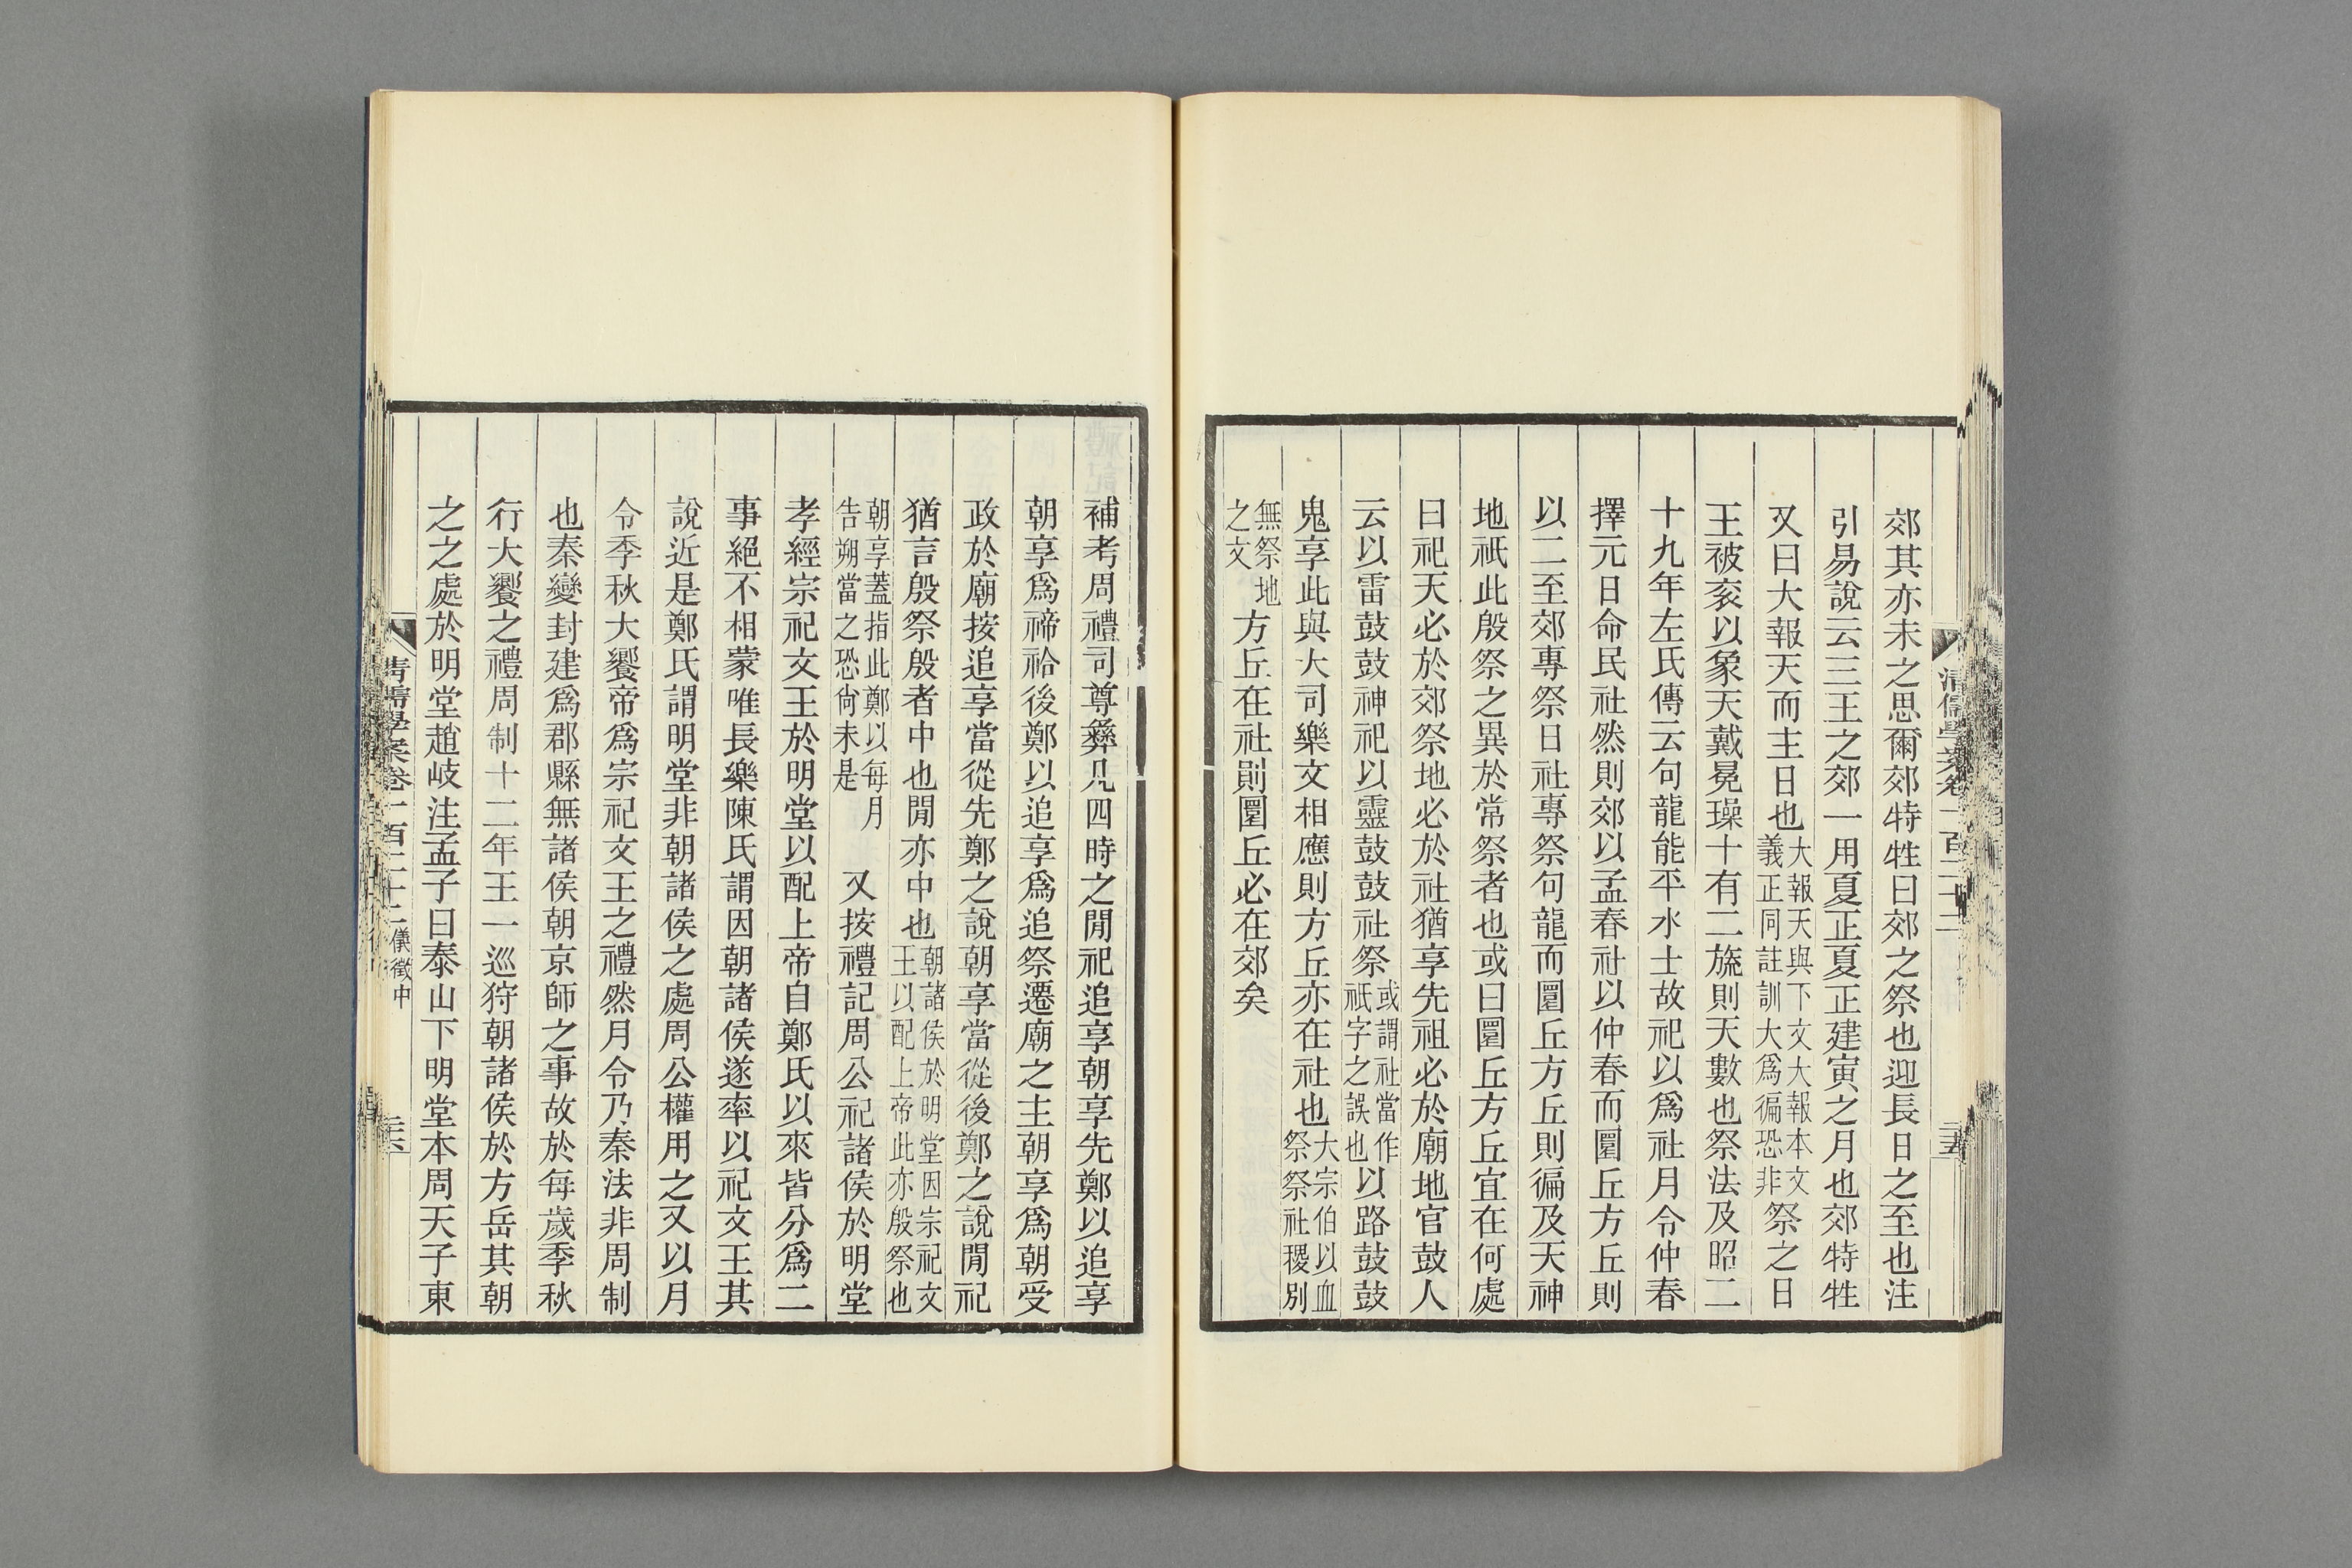 郊其亦未之思爾郊特牲曰郊之祭也迎長日之至也注
引易說云三王之郊一用夏正夏正建寅之月也郊特牲
又曰大報天而主日也大報天與下文大報本文義正同註訓大爲徧恐非祭之日
王被衮以象天戴冕璪十有二旒則天數也祭法及昭二
十九年左氏傳云句龍能平水土故祀以爲社月令仲春
擇元日命民社然則郊以孟春社以仲春而圜丘方丘則
以二至郊專祭日社專祭句龍而圜丘方丘則徧及天神
地祇此殷祭之異於常祭者也或曰圜丘方丘宜在何處
曰祀天必於郊祭地必於社猶享先祖必於廟地官鼓人
云以雷鼓鼓神祀以靈鼓鼓社祭或謂社當作祇字之誤也以路鼓鼓
鬼享此與大司樂文相應則方丘亦在社也大宗伯以血祭祭社稷別
無祭地之文方丘在社則圜丘必在郊矣
補考周禮司尊彝凡四時之閒祀追享朝享先鄭以追享
朝享爲禘祫後鄭以追享爲追祭遷廟之主朝享爲朝受
政於廟按追享當從先鄭之說朝享當從後鄭之說閒祀
猶言殷祭殷者中也閒亦中也朝諸侯於明堂因宗祀文王以配上帝此亦殷祭也
朝享蓋指此鄭以每月告朔當之恐尙未是 又按禮記周公祀諸侯於明堂
孝經宗祀文王於明堂以配上帝自鄭氏以來皆分爲二
事絕不相蒙唯長樂陳氏謂因朝諸侯遂率以祀文王其
說近是鄭氏謂明堂非朝諸侯之處周公權用之又以月
令季秋大饗帝爲宗祀文王之禮然月令乃秦法非周制
也秦變封建爲郡縣無諸侯朝京師之事故於每歲季秋
行大饗之禮周制十二年王一巡狩朝諸侯於方岳其朝
之之處於明堂趙岐注孟子曰泰山下明堂本周天子東
清儒學案卷一百二十二儀徵中